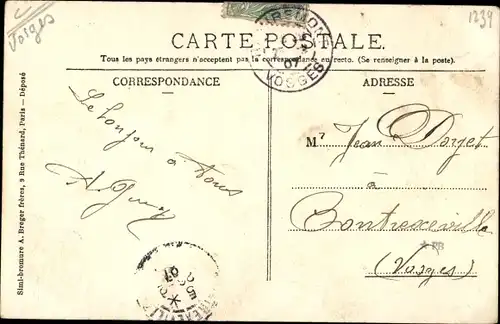 Vosges
1239
CARTE POSTALE.
Tous les pays étrangers n'acceptent pas la correspondance au recto. (Se renseigner à la poste).
CORRESPONDANCE
ADRESSE
Le bonjour à tous
Mr Jean
à
Contrexeville
(Vosges)
VOSGES
07
Simi-bromure A. Breger frères, 9 Rue Thénard, Paris — Déposé